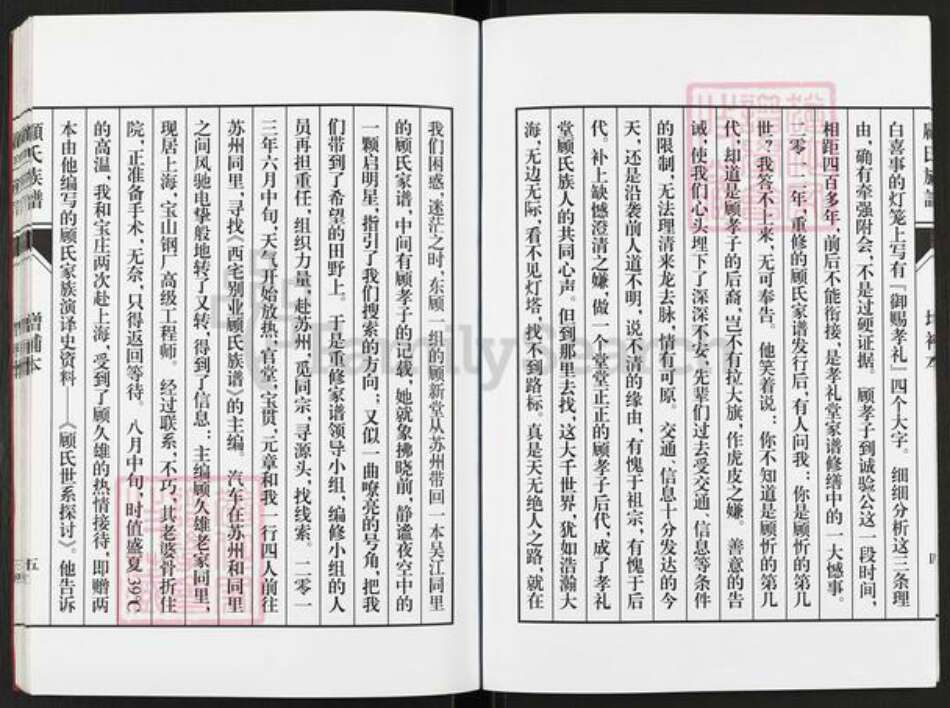 白喜事的灯笼上写有「御赐孝礼」四个大字。细细分析这三条理
由，确有牵强附会，不是过硬证据。顾孝子到诚验公这一段时间，
相距四百多年，前后不能衔接，是孝礼堂家谱修缮中的一大憾事。
二零一一年，重修的顾氏家谱发行后，有人问我：你是顾忻的第几
世？我答不上来，无可奉告。他笑着说：你不知道是顾忻的第几
代，却道是顾孝子的后裔，岂不有拉大旗，作虎皮之嫌。善意的告
诫，使我们心头埋下了深深不安，先辈们过去受交通、信息等条件
的限制，无法理清来龙去脉，情有可原。交通、信息十分发达的今
天，还是沿袭前人道不明，说不清的缘由，有愧于祖宗，有愧于后
代。补上缺憾澄清之嫌，做一个堂堂正正的顾孝子后代，成了孝礼
堂顾氏族人的共同心声。但到那里去找，这大千世界，犹如浩瀚大
海，无边无际，看不见灯塔，找不到路标。真是天无绝人之路，就在
我们困惑、迷茫之时，东顾一组的顾新堂从苏州带回一本吴江同里
的顾氏家谱，中间有顾孝子的记载，她就象拂晓前，静谧夜空中的
一颗启明星，指引了我们搜索的方向；又似一曲嘹亮的号角，把我
们带到了希望的田野上。于是重修家谱领导小组，编修小组的人
员再担重任，组织力量，赴苏州，觅同宗，寻源头，找线索。二零一
三年六月中旬，天气开始放热，官堂，宝贯，元章和我一行四人前往
苏州同里，寻找《西宅别业顾氏族谱》的主编。汽车在苏州和同里
之间风驰电掣般地转了又转，得到了信息：主编顾久雄老家同里，
现居上海，宝山钢厂高级工程师。经过联系，不巧，其老婆骨折住
院，正准备手术，无奈，只得返回等待。八月中旬，时值盛夏，39℃
的高温，我和宝庄两次赴上海，受到了顾久雄的热情接待，即赠两
本由他编写的顾氏家族演译史资料——《顾氏世系探讨》。他告诉
顾氏族谱
增补本
五
FamilySearch